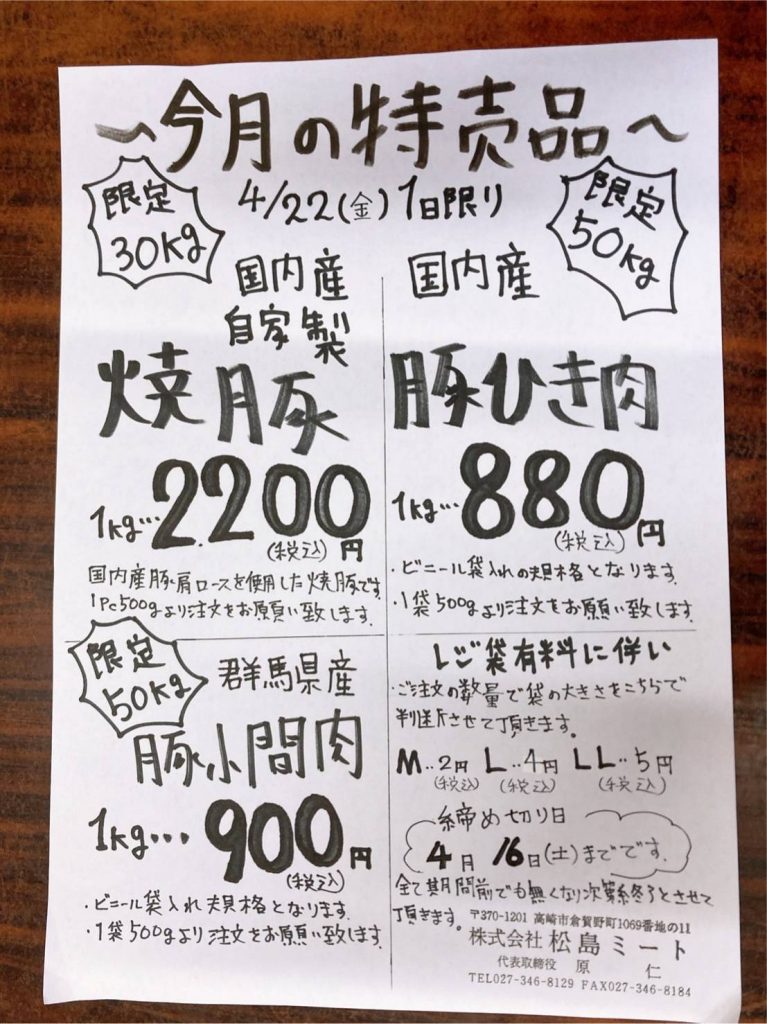 ～今月の特売品～
4/22(金)1日限り
限定
30kg
国内産
自家製
焼豚
1kg…2.200円
(税込)
国内産豚肩ロースを使用した焼豚です
1Pc500gより注文をお願い致します。
限定
50kg
国内産
豚ひき肉
1kg…880円
(税込)
・ビニール袋入れの規格となります
・1袋500gより注文をお願い致します
限定
50kg
群馬県産
豚小間肉
1kg…900円
(税込)
・ビニール袋入れ規格となります
・1袋500gより注文をお願い致します
レジ袋有料に伴い
・ご注文の数量で袋の大きさをこちらで
判断させて頂きます。
M‥2円 L‥4円 LL‥5円
(税込) (税込) (税込)
締め切り日
4月16日(土)までです。
全て期間前でも無くなり次第終了とさせて
頂きます。
〒370-1201 高崎市倉賀野町1069番地の11
株式会社 松島ミート
代表取締役 原 仁
TEL027-346-8129 FAX027-346-8184